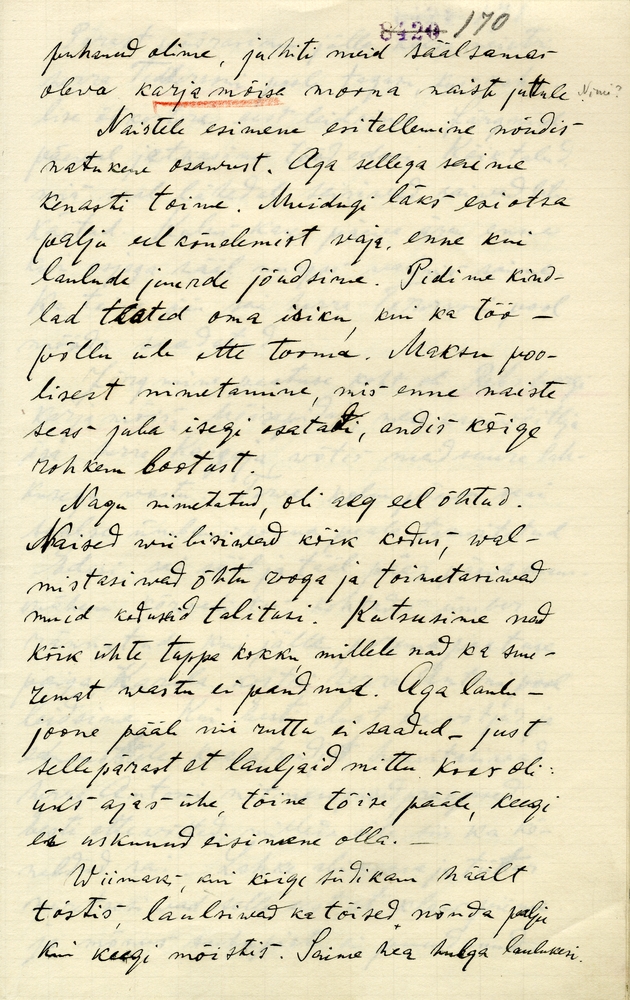 8420 170
puhanud olime, juhiti meid säälsamas
oleva karjamõise moona naiste juttule. Nimi?
Naistele esimene esitellemine nõndis
natukene osawust. Aga sellega saime
kenasti toime. Muidugi läks esiotsa
palju eelkõnelemist vaja, enne kui
laulude juurde jõudsime. Pidime kind-
lad teated oma isiku, kui ka töö-
põllu üle ette tooma. Maksu poo-
lisest nimetamine, mis enne naiste
seas juba isegi osatati, andis kõige
rohkem lootust.
Nagu nimetatud, oli aeg eel õhtud.
Naised wiibisiwad kõik kodus, wal-
mistasiwad õhtu rooga ja toimetasiwad
muid koduseid talitusi. Kutsusime nad
kõik ühte tuppa kokku, millele nad ka suu-
remat wastu ei pandnud. Aga laulu-
joone pääle nii ruttu ei saadud – just
sellepärast et lauljaid mittu koos oli:
üks ajas ühe, tõine tõise pääle, keegi
ei uskunud esimene olla. –
Wiimaks, kui kõige südikam häält
tõstis, laulsiwad ka tõised nõnda palju
kui keegi mõistis. Saime hea hulga laulukesi.